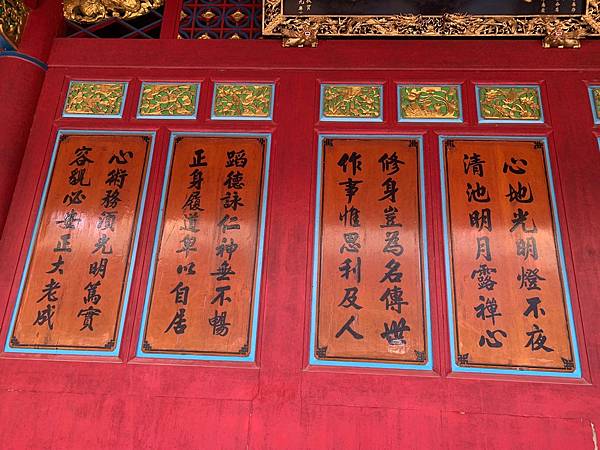 心地光明燈不夜
清池明月露禪心
修身豈為名傳世
作事惟思利及人
蹈德詠仁神無不暢
正身履道卑以自居
心術務須光明篤實
容貌必要正大老成